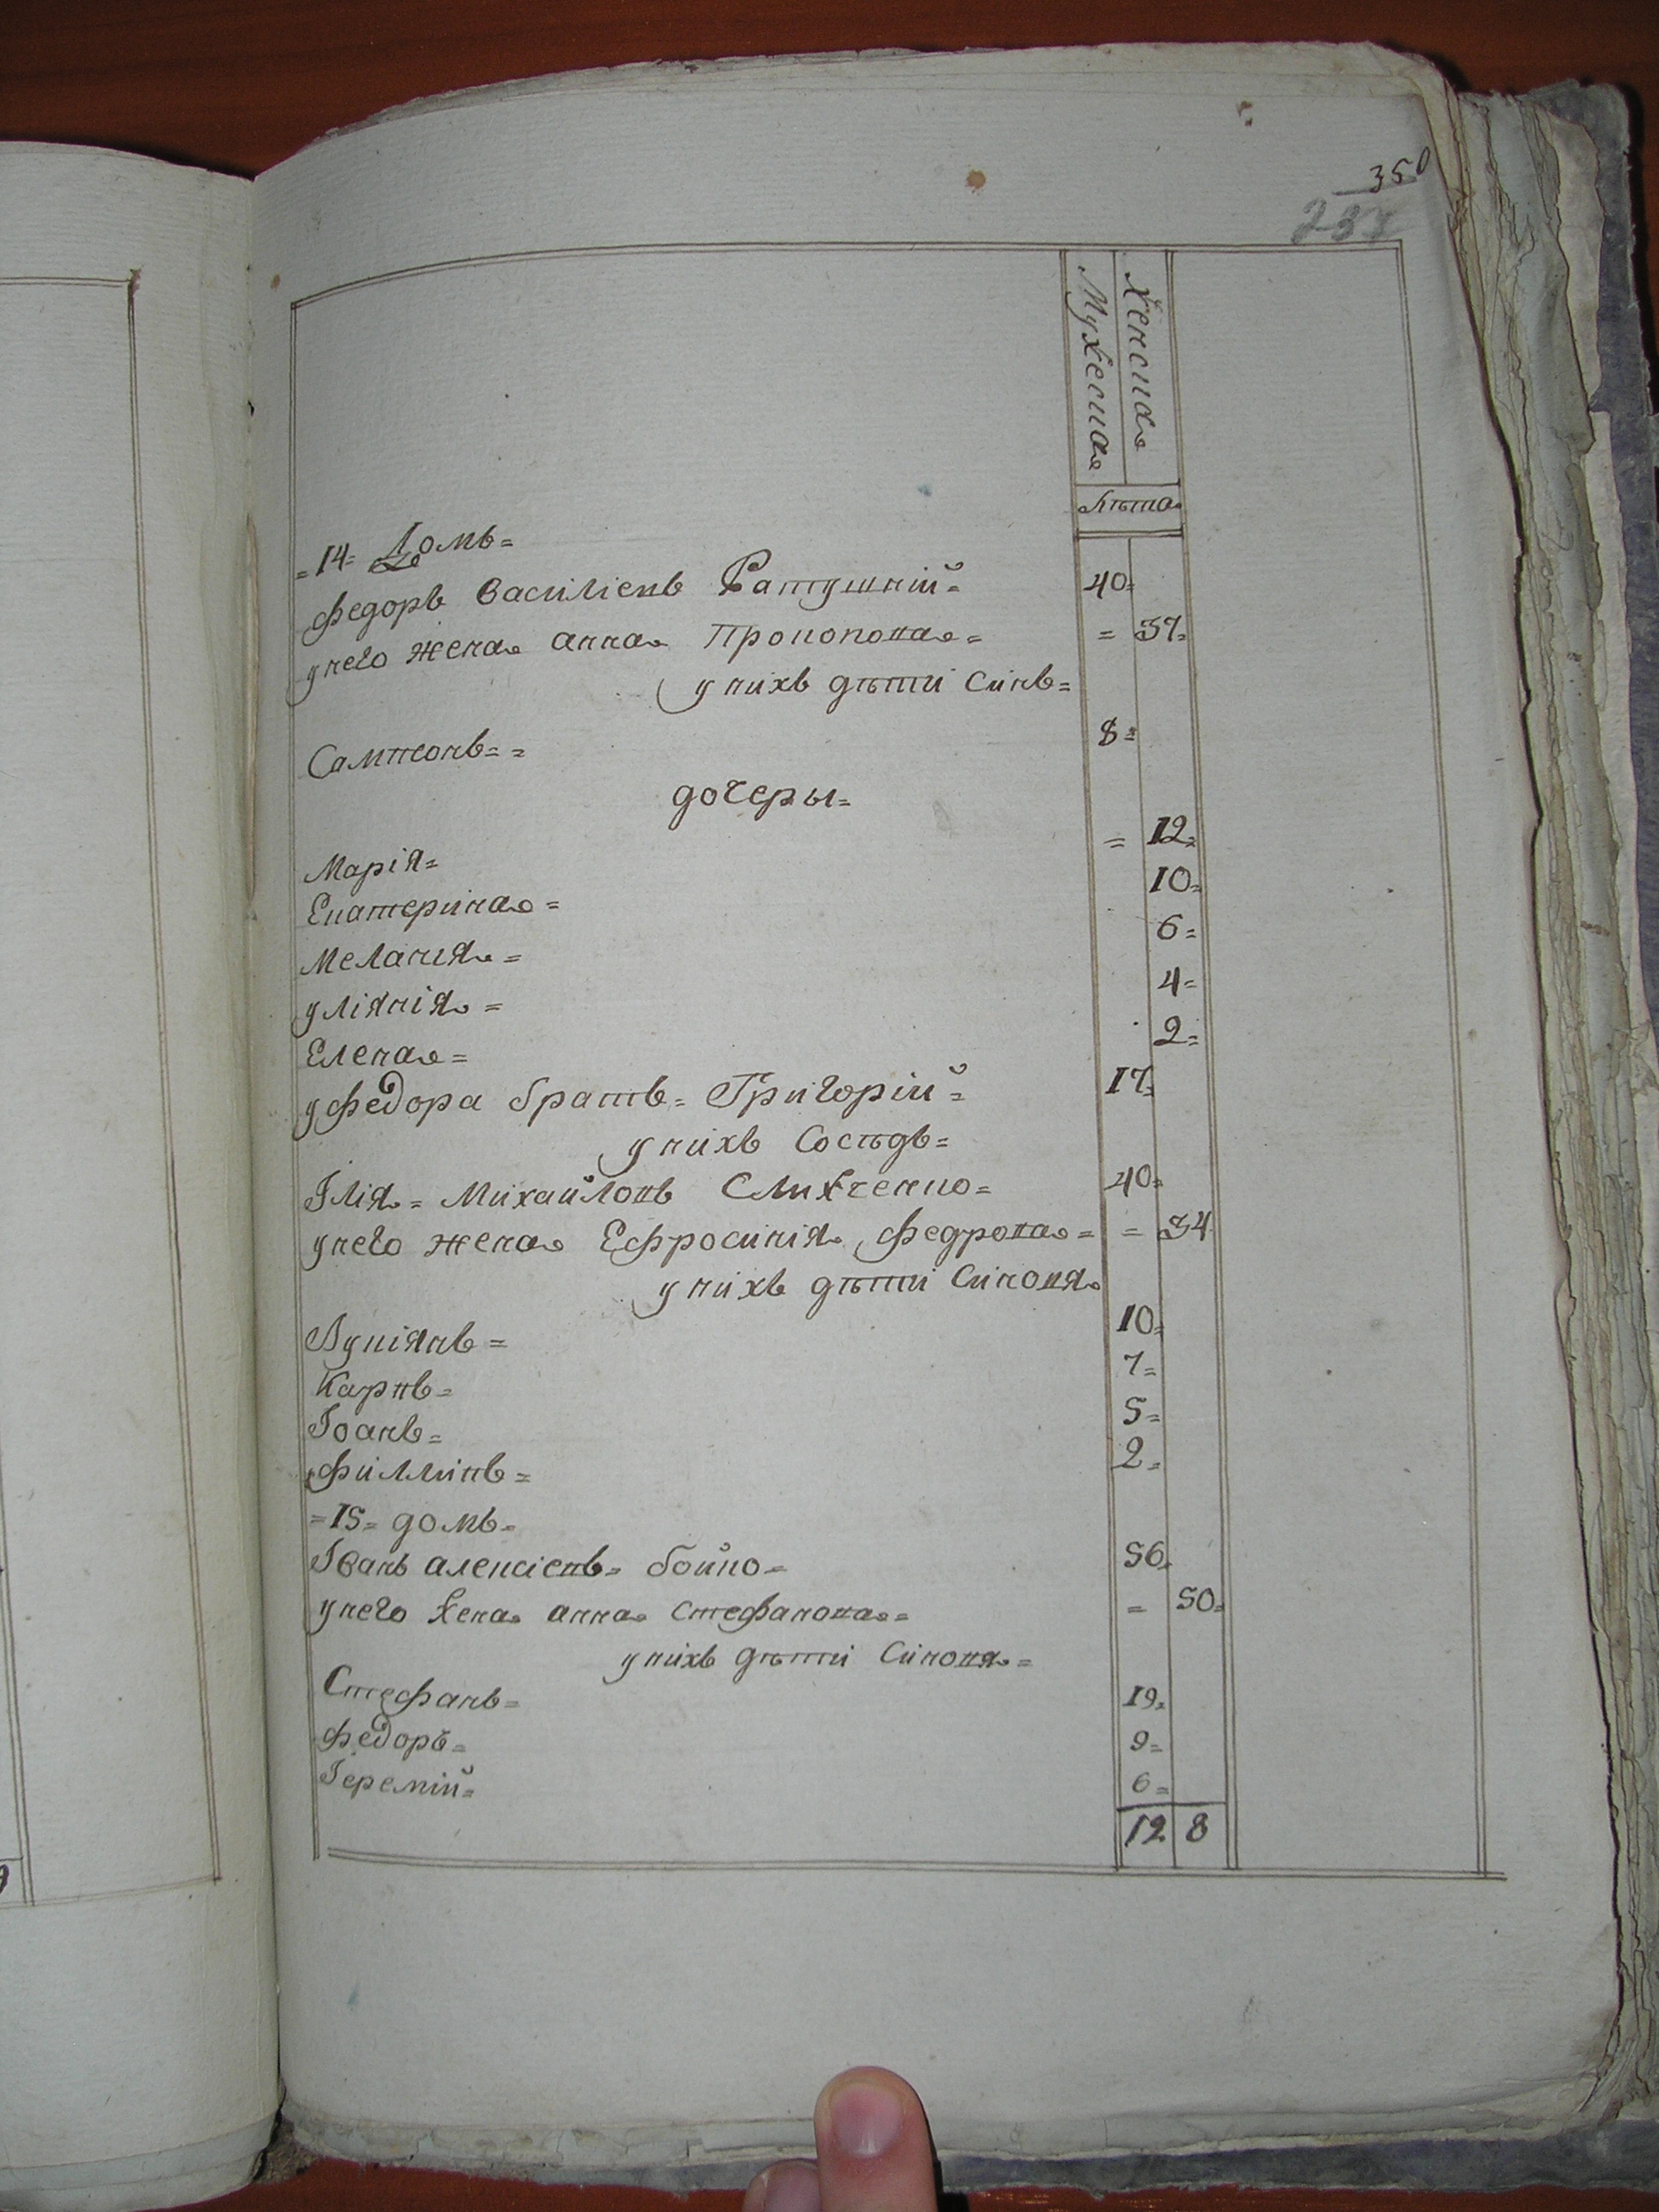 350
237
Мужеска
Женска
Лѣта
=14= Домъ=
Федоръ Василіевъ Ратушній= 40=
у него жена анна Прокопова= = 37=
у нихъ дѣти Синъ=
Сампсонъ= = 8=
дочеры=
Марія= = 12=
Екатерина= 10=
Меланія= 6=
уліянія= 4=
Елена= 2=
у Федора братъ= Григорій= 17=
у нихъ Сосѣдъ=
Ілія= Михайловъ Слижченко= 40=
у него жена Ефросинія Федрова= = 34
у нихъ дѣти Синовя
Лукіянъ= 10=
Карпъ= 7=
Іоанъ= 5=
Филлипъ= 2=
=15= домъ=
Іванъ алексіевъ= бойко= 56=
у него жена анна Стефанова= = 50=
у нихъ дѣти Синовя=
Стефанъ= 19=
Федоръ= 9=
Іеремій= 6=
12 8